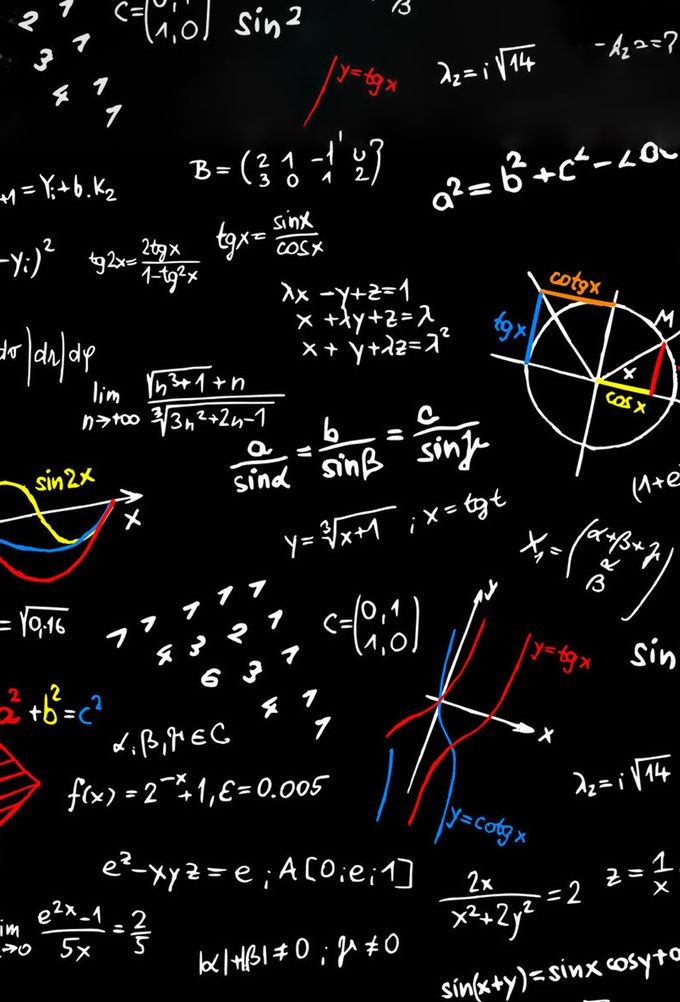 2 1
3 1
4 1
1
C=(0,1
1,0)
sin²
β
y=tgx
λ₂=i√14
-λ₂=?
B=(2 1 -1
3 0 1 2)
+1=Yᵢ+b.K₂
a²=b²+c²-2
-Yᵢ)²
tg2x=2tgx/1-tg²x
tgx=sinx/cosx
λx-y+z=1
x+λy+z=λ
x+y+λz=λ²
cotgx
tgx
M
x
cosx
|dr|dφ
lim n→+∞ √n³+1+n/∛3n²+2n-1
a/sinα=b/sinβ=c/sinγ
sin2x
x
y=∛x+1 ; x=tgt
(1+e
X₁=(α+β+γ
α
β)
=√0,16
1 1 1 1 1
4 3 2 1
6 3 1
4 1
1
C=(0,1
1,0)
y
y=tgx
x
y=cotgx
sin
a²+b²=c²
α,β,γ∈C
f(x)=2⁻ˣ+1, ε=0.005
λ₂=i√14
e²-xyz=e ; A[0;e;1]
2x/x²+2y²=2
z=1/x
im →0 e²ˣ-1/5x=2/5
|α|+|β|≠0 ; γ≠0
sin(x+y)=sinx cosy+